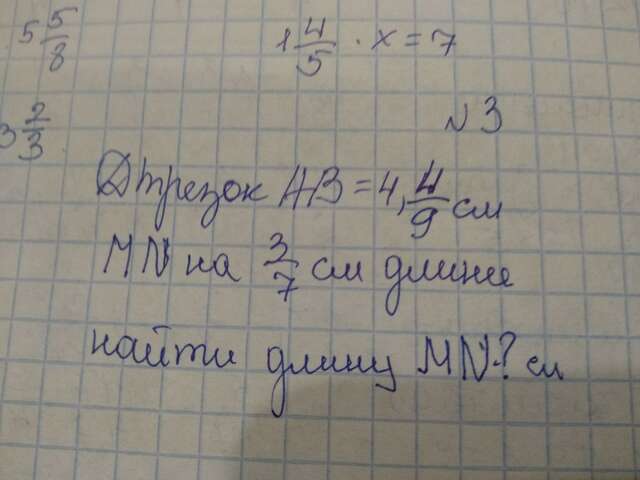 5 5/8
1 4/5 · x = 7
3 2/3
№3
Отрезок AB = 4, 4/9 см
MN на 3/7 см длине
найти длину MN-? см